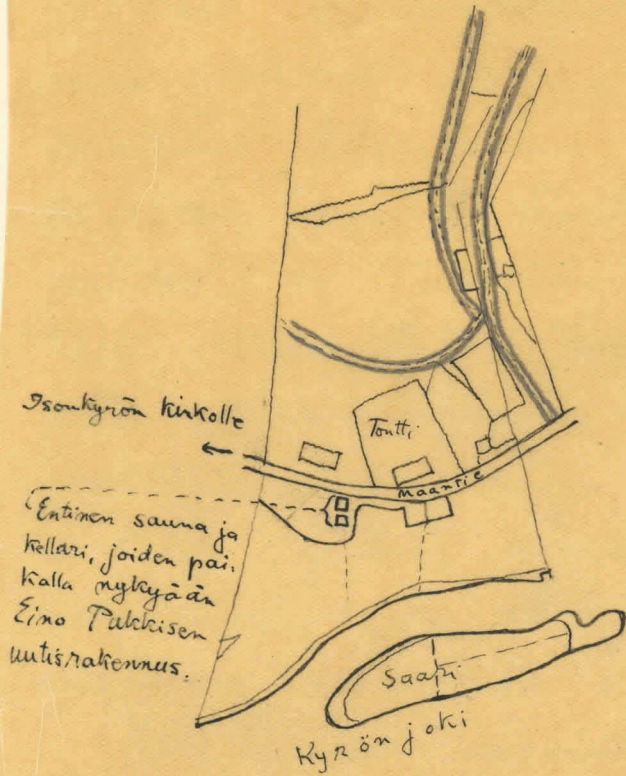 Isonkyrön kirkolle
Tontti
Maantie
(Entinen sauna ja
kellari, joiden pai-
kalla nykyään
Eino Pukkisen
uutisrakennus.
Saari
Kyrönjoki